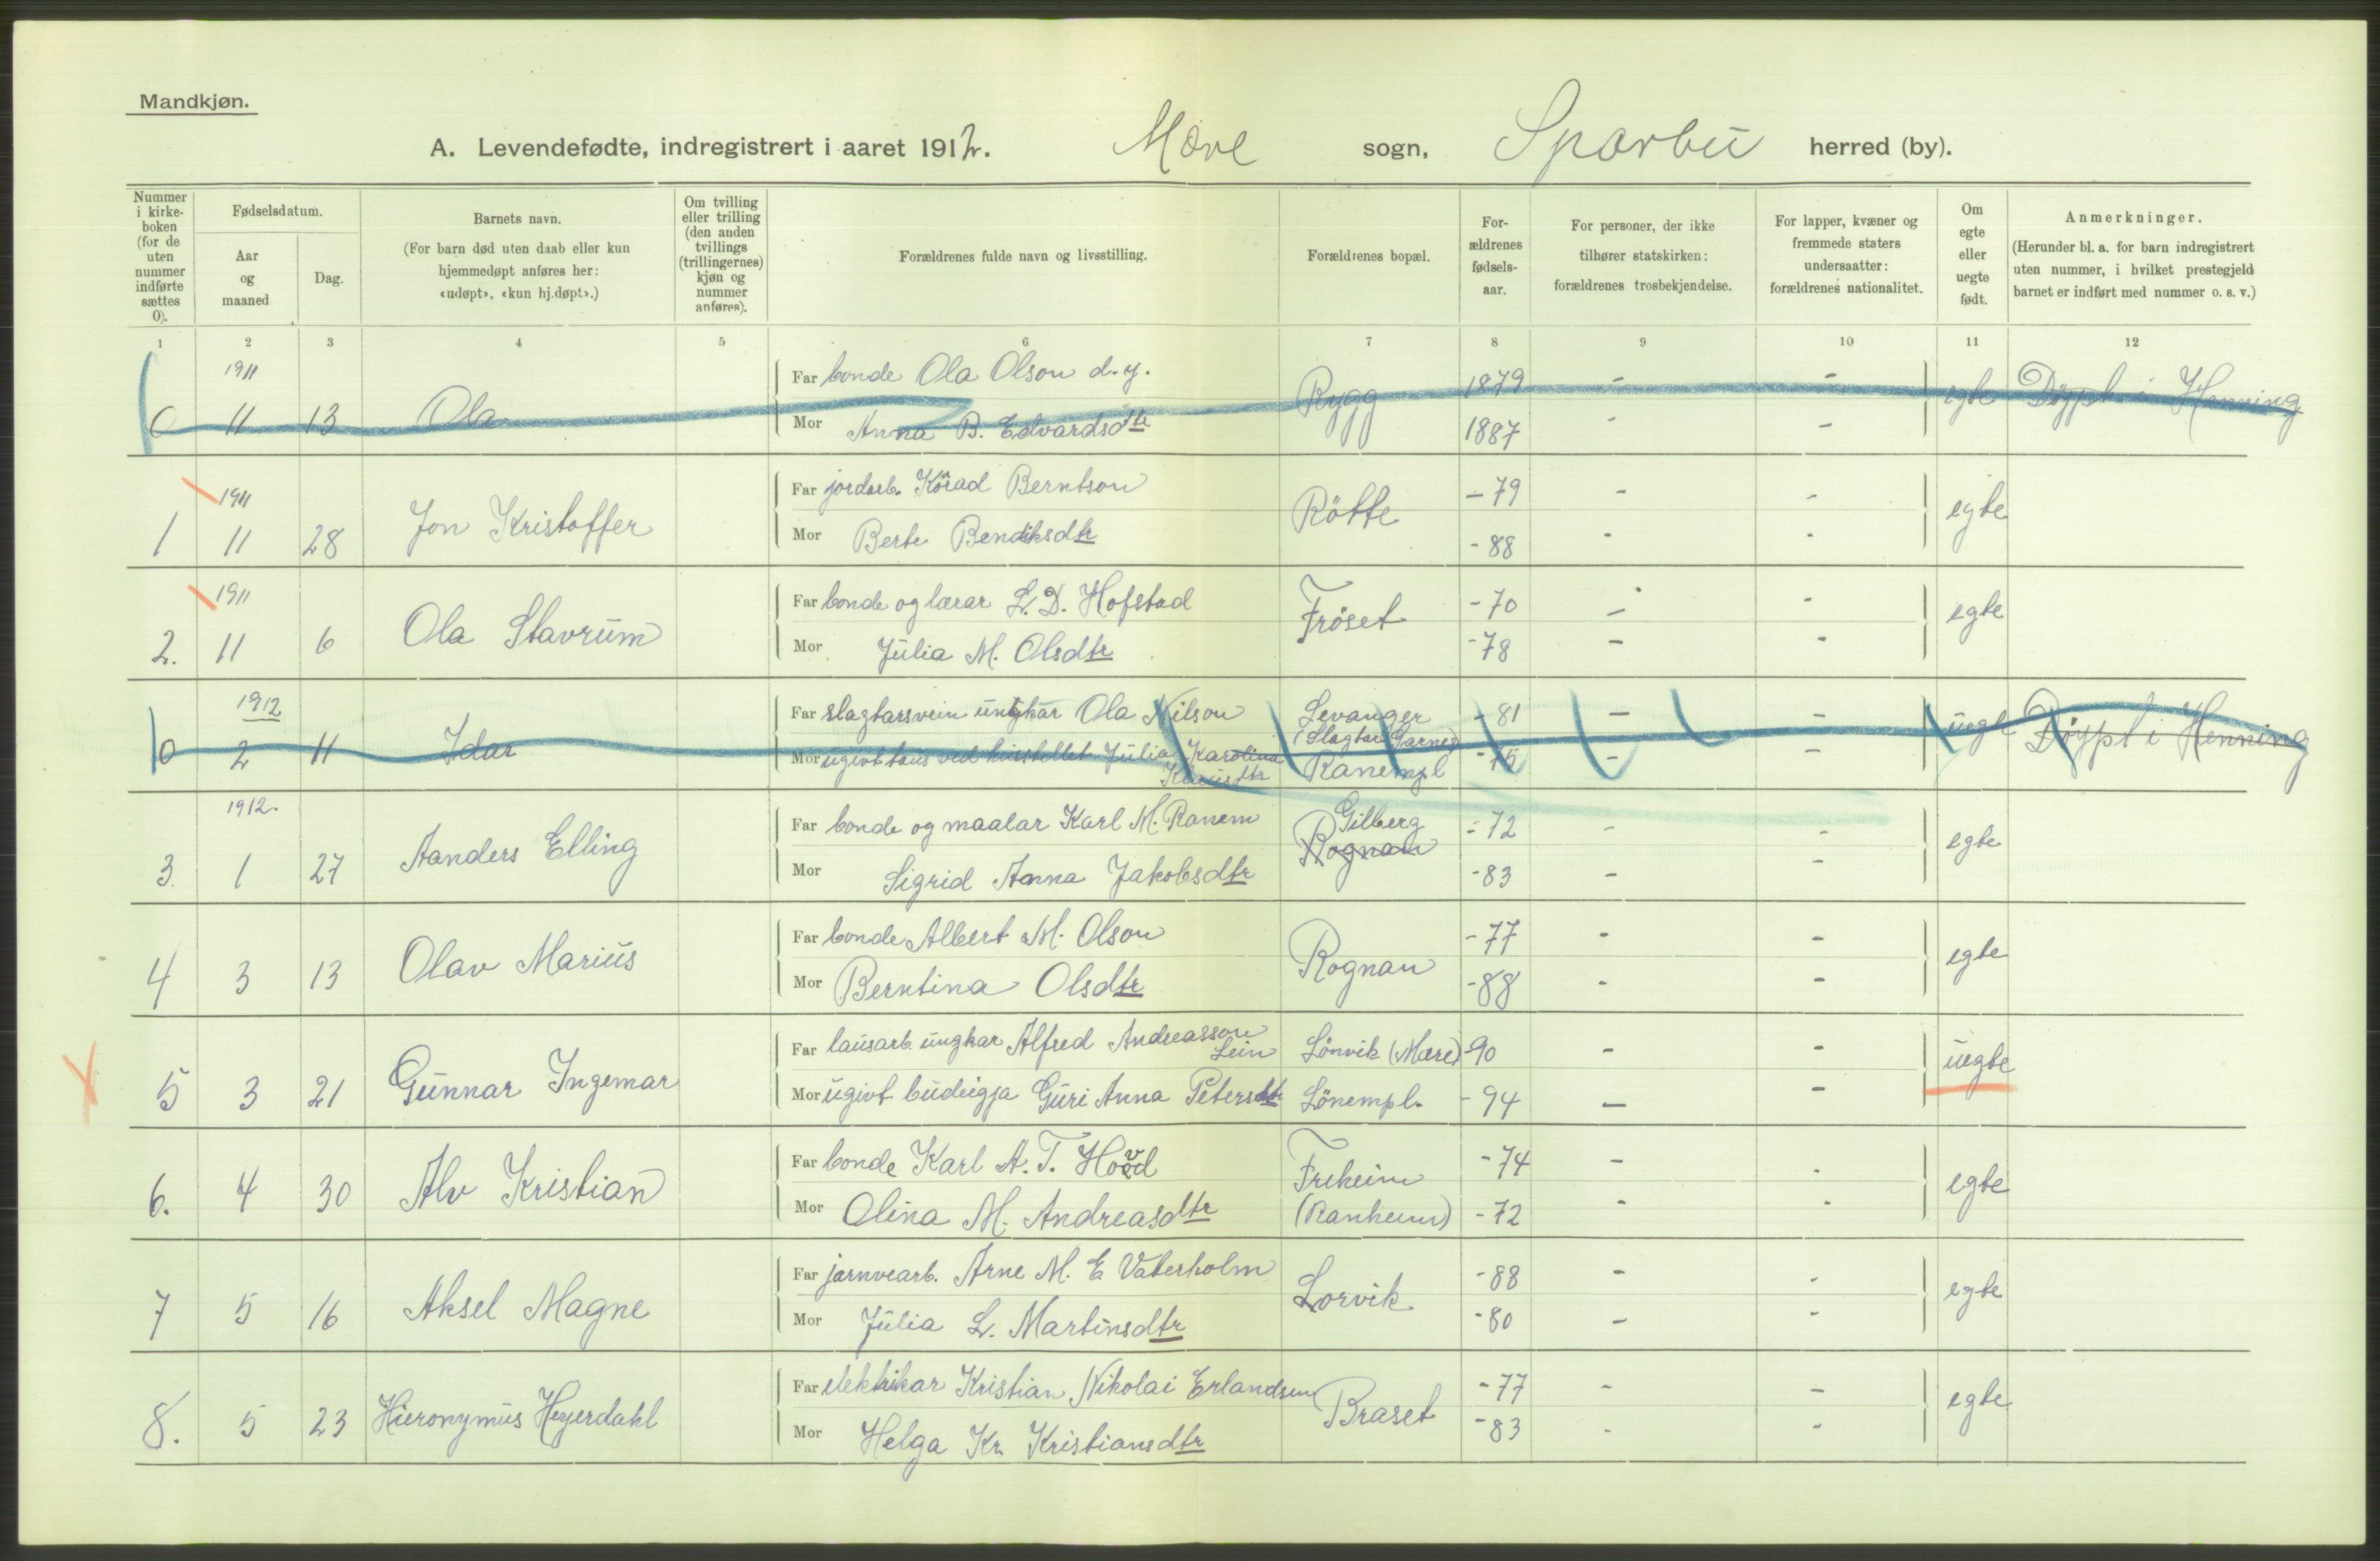 Mandkjøn.
A. Levendefødte, indregistrert i aaret 1912. Mære sogn, Sparbu herred (by).
Nummer i kirke- boken (for de uten nummer indførte sættes 0).
Fødselsdatum.
Aar og maaned
Dag.
Barnets navn.
(For barn død uten daab eller kun hjemmedøpt anføres her: «udøpt», «kun hj.døpt».)
Om tvilling eller trilling (den anden tvillings (trillingernes) kjøn og nummer anføres).
Forældrenes fulde navn og livsstilling.
Forældrenes bopæl.
For- ældrenes fødsels- aar.
For personer, der ikke tilhører statskirken: forældrenes trosbekjendelse.
For lapper, kvæner og fremmede staters undersaatter: forældrenes nationalitet.
Om egte eller uegte født.
Anmerkninger.
(Herunder bl. a. for barn indregistrert uten nummer, i hvilket prestegjeld barnet er indført med nummer o. s. v.)
1 2 3 4 5 6 7 8 9 10 11 12
1911
Far bonde Ola Olson d.y. 1879 - -
0 11 13 Ola Rygg egte Döypt i Henning
Mor Anna B. Edvardsdtr 1887 - -
1911
Far jordarb. Körad Berntson - 79 - -
1 11 28 Jon Kristoffer Rötte egte
Mor Berte Bendiksdtr - 88 - -
1911
Far bonde og lærar L. D. Hofstad - 70 - -
2. 11 6 Ola Stavrum Fröset egte
Mor Julia M. Olsdtr - 78 - -
1912
Far slagtarsvein ungkar Ola Nilson Levanger - 81 - -
(Slagtar Garnes)
0 2 11 Idar uegt Döypt i Henning
Mor ugivt taus ved huistellet Julia Karolina Klausdtr Ranempl - 75 - -
1912.
Far bonde og maalar Karl M. Ranem Gilberg - 72 - -
3. 1 27 Aanders Elling Rognan egte
Mor Sigrid Anna Jakobsdtr - 83 - -
Far bonde Albert M. Olson - 77 - -
4 3 13 Olav Marius Rognan egte
Mor Berntina Olsdtr - 88 - -
Far lausarb. ungkar Alfred Andreasson Lein Lönvik (Mære) - 90 - -
5 3 21 Gunnar Ingemar uegte
Mor ugivt budeigja Guri Anna Petersdtr Lönempl. - 94 - -
Far bonde Karl A. T. Hovd Freheim - 74 - -
6. 4 30 Alv Kristian egte
Mor Olina M. Andreasdtr (Ranheim) - 72 - -
Far jarnvearb. Arne M. E Vaterholm - 88 - -
7 5 16 Aksel Magne Lorvik egte
Mor Julia L. Martinsdtr - 80 - -
Far elektrikar Kristian Nikolai Erlandsen - 77 - -
8. 5 23 Hieronymus Heyerdahl Braset egte
Mor Helga Kr. Kristiansdtr - 83 - -